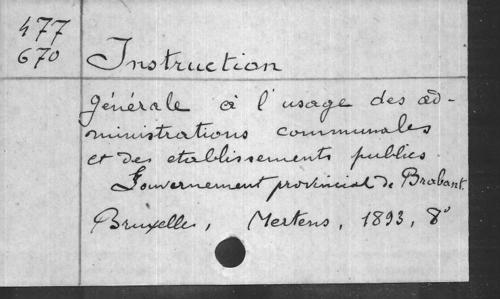 477
670
Instruction
générale à l'usage des ad-
ministrations communales
et des etablissements publics.
Gouvernement provincial de Brabant.
Bruxelles, Mertens, 1893, 8°